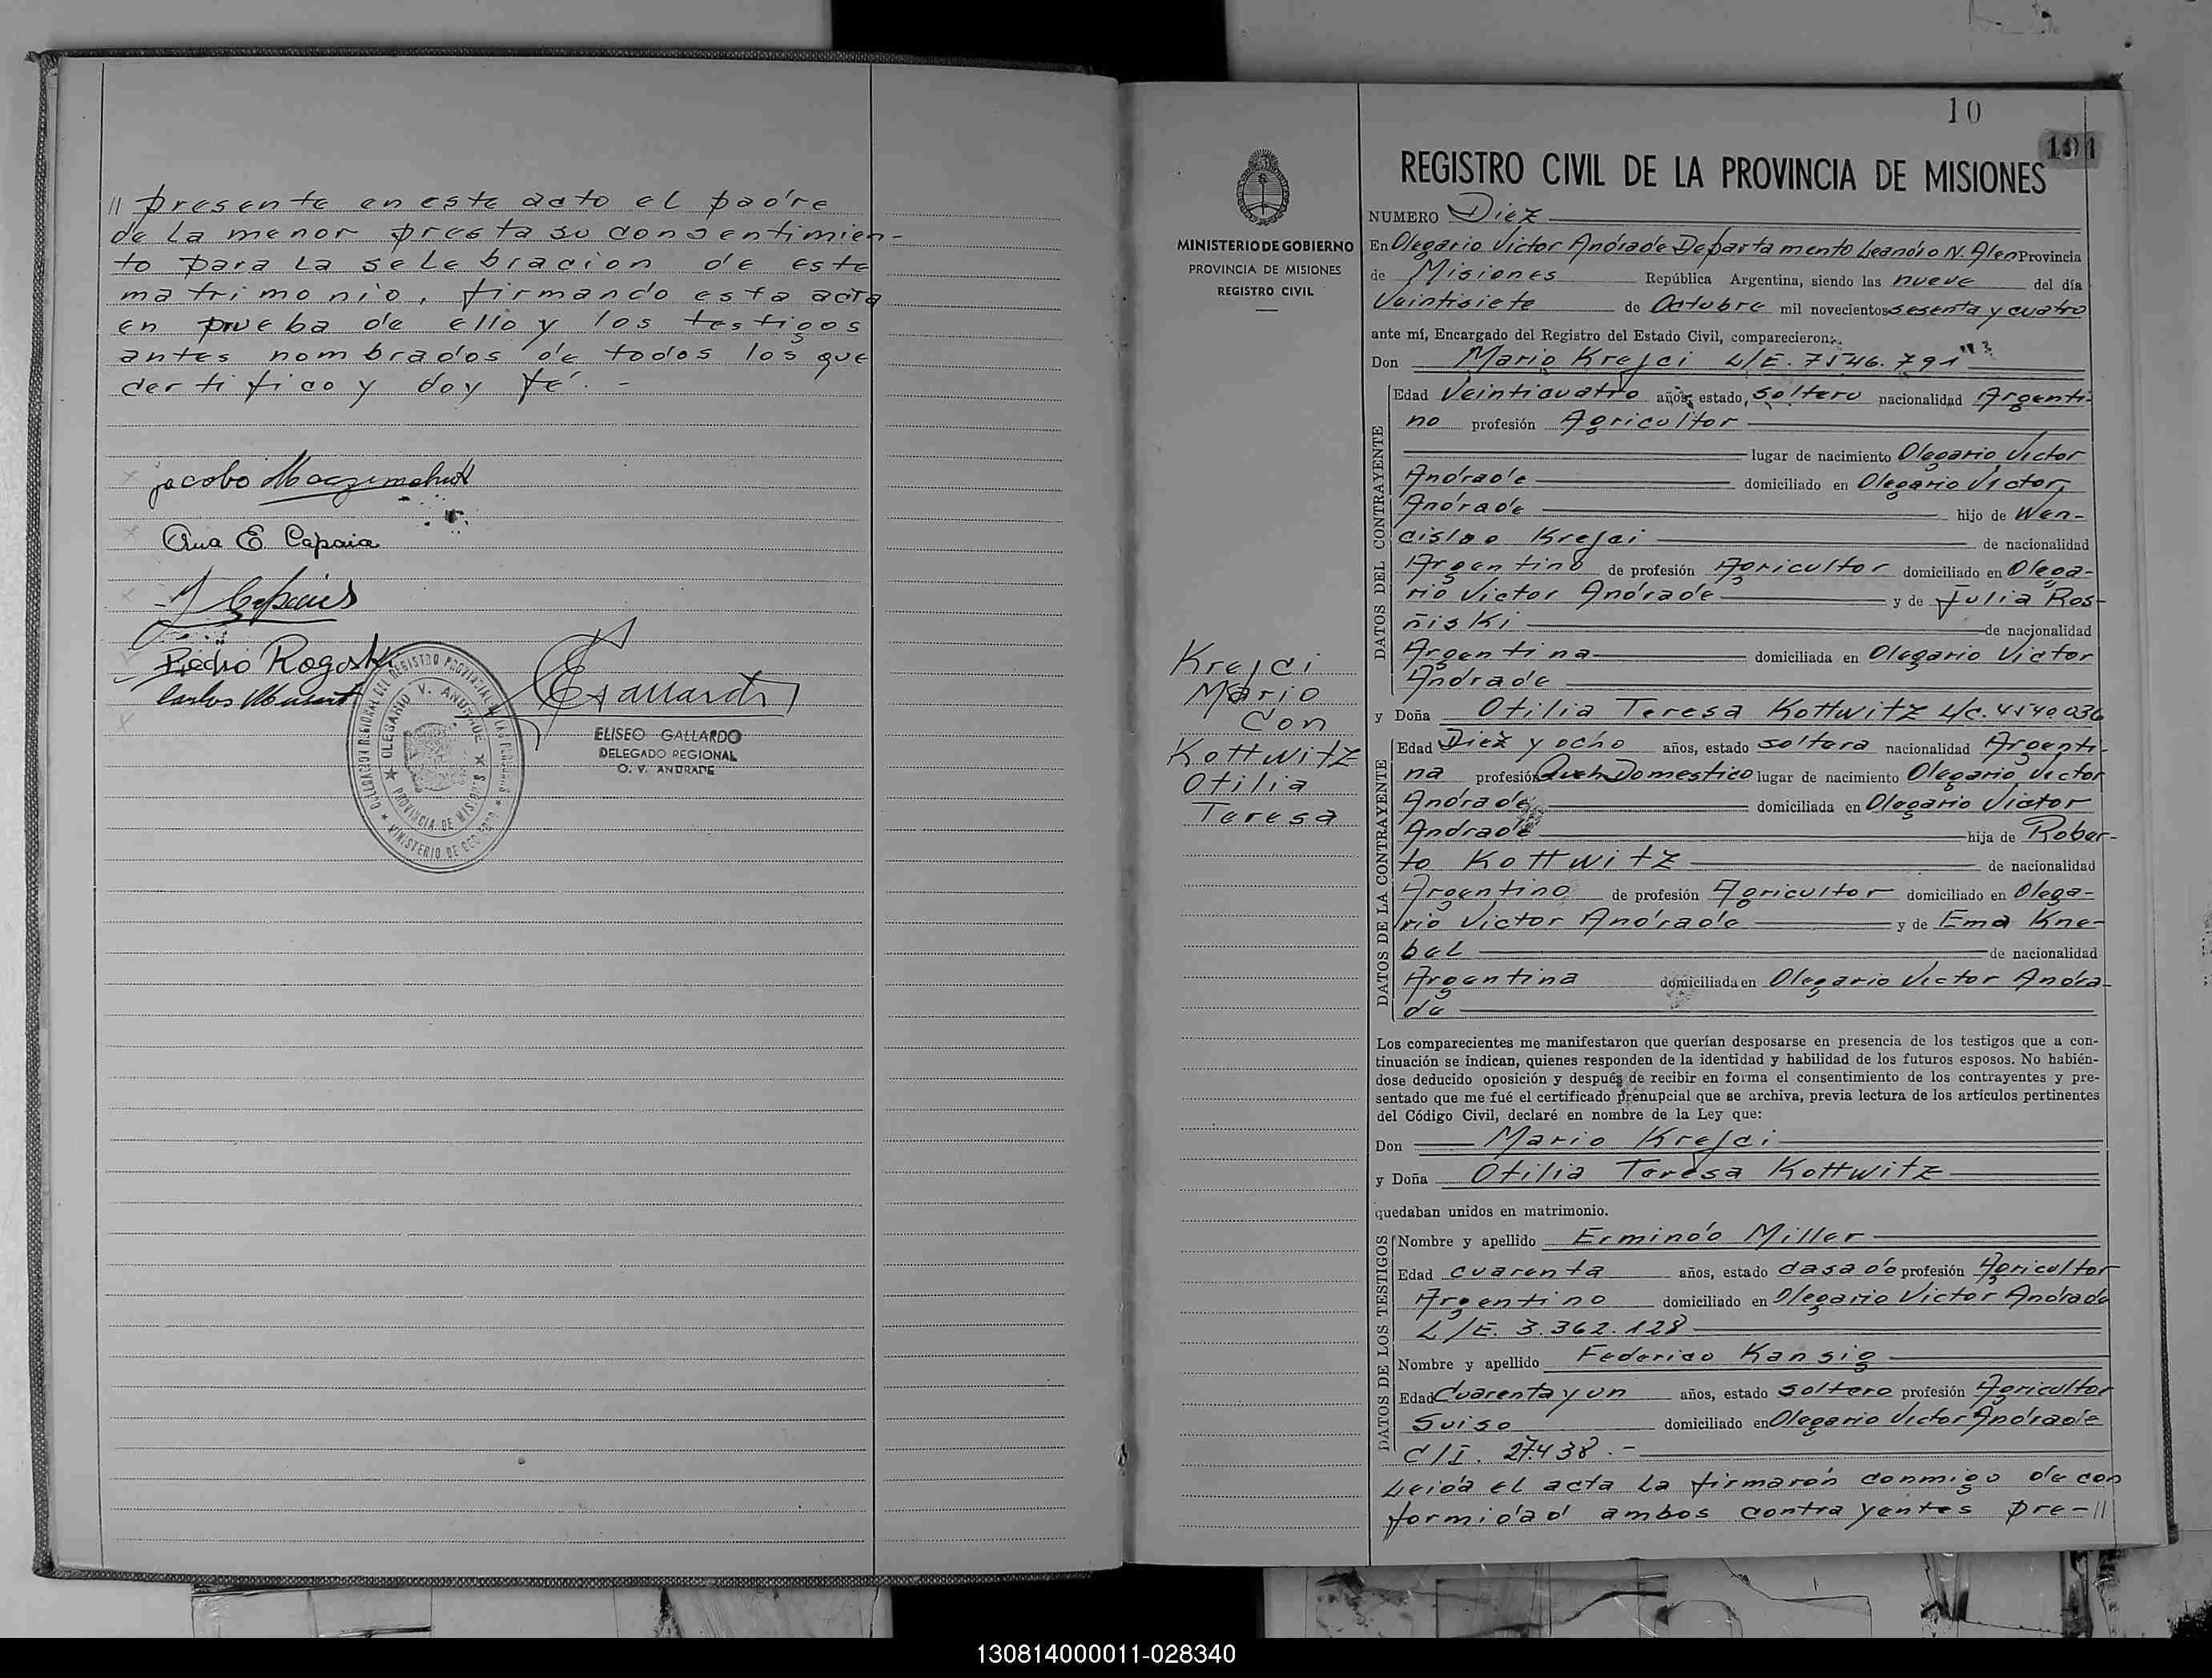 // presente en este acto el padre
de la menor presta su consentimien-
to para la selebracion de este
matrimonio, firmando esta acta
en prueba de ello y los testigos
antes nombrados de todos los que
certifico y doy fé. -
jacobo
Ana E Capaia
Pedro Rogoski
Carlos
ELISEO GALLARDO
DELEGADO REGIONAL
O. V. ANDRADE
OLEGARIO V. ANDRADE
PROVINCIA DE MISIONES
10
101
MINISTERIO DE GOBIERNO
PROVINCIA DE MISIONES
REGISTRO CIVIL
Krejci
Mario
Con
Kottwitz
Otilia
Teresa
REGISTRO CIVIL DE LA PROVINCIA DE MISIONES
NUMERO Diez
En Olegario Victor Andrade Departamento Leandro N. Alen Provincia
de Misiones República Argentina, siendo las nueve del día
Veintisiete de Octubre mil novecientos sesenta y cuatro
ante mí, Encargado del Registro del Estado Civil, comparecieron:
Don Mario Krejci L/E. 7546.791
DATOS DEL CONTRAYENTE
Edad Veinticuatro años, estado, soltero nacionalidad Argenti-
no profesión Agricultor
lugar de nacimiento Olegario Victor
Andrade domiciliado en Olegario Victor
Andrade hijo de Wen-
cislao Krejci de nacionalidad
Argentino de profesión Agricultor domiciliado en Olega-
rio Victor Andrade y de Julia Ros-
ñiski de nacionalidad
Argentina domiciliada en Olegario Victor
Andrade
y Doña Otilia Teresa Kottwitz L/C. 4540036
DATOS DE LA CONTRAYENTE
Edad Diez y ocho años, estado soltera nacionalidad Argenti-
na profesión Domestico lugar de nacimiento Olegario Victor
Andrade domiciliada en Olegario Victor
Andrade hija de Rober-
to Kottwitz de nacionalidad
Argentino de profesión Agricultor domiciliado en Olega-
rio Victor Andrade y de Ema Kne-
bel de nacionalidad
Argentina domiciliada en Olegario Victor Andra-
de
Los comparecientes me manifestaron que querían desposarse en presencia de los testigos que a con-
tinuación se indican, quienes responden de la identidad y habilidad de los futuros esposos. No habién-
dose deducido oposición y después de recibir en forma el consentimiento de los contrayentes y pre-
sentado que me fué el certificado prenupcial que se archiva, previa lectura de los artículos pertinentes
del Código Civil, declaré en nombre de la Ley que:
Don Mario Krejci
y Doña Otilia Teresa Kottwitz
quedaban unidos en matrimonio.
DATOS DE LOS TESTIGOS
Nombre y apellido Ermindo Miller
Edad cuarenta años, estado casado profesión Agricultor
Argentino domiciliado en Olegario Victor Andrade
L/E. 3.362.128
Nombre y apellido Federico Kansig
Edad Cuarenta y un años, estado soltero profesión Agricultor
Suiso domiciliado en Olegario Victor Andrade
C/I. 27.438.-
Leida el acta la firmarón conmigo de con
formidad ambos contrayentes pre-//
130814000011-028340